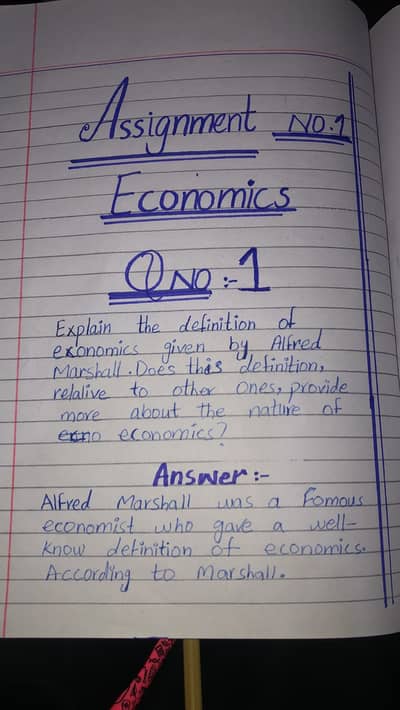 Assignment NO.1
Economics
Q NO :- 1
Explain the definition of
exonomics given by Alfred
Marshall. Does this definition,
relalive to other ones, provide
more about the nature of
economics?
Answer :-
Alfred Marshall was a Fomous
economist who gave a well-
Know definition of economics.
According to Marshall.